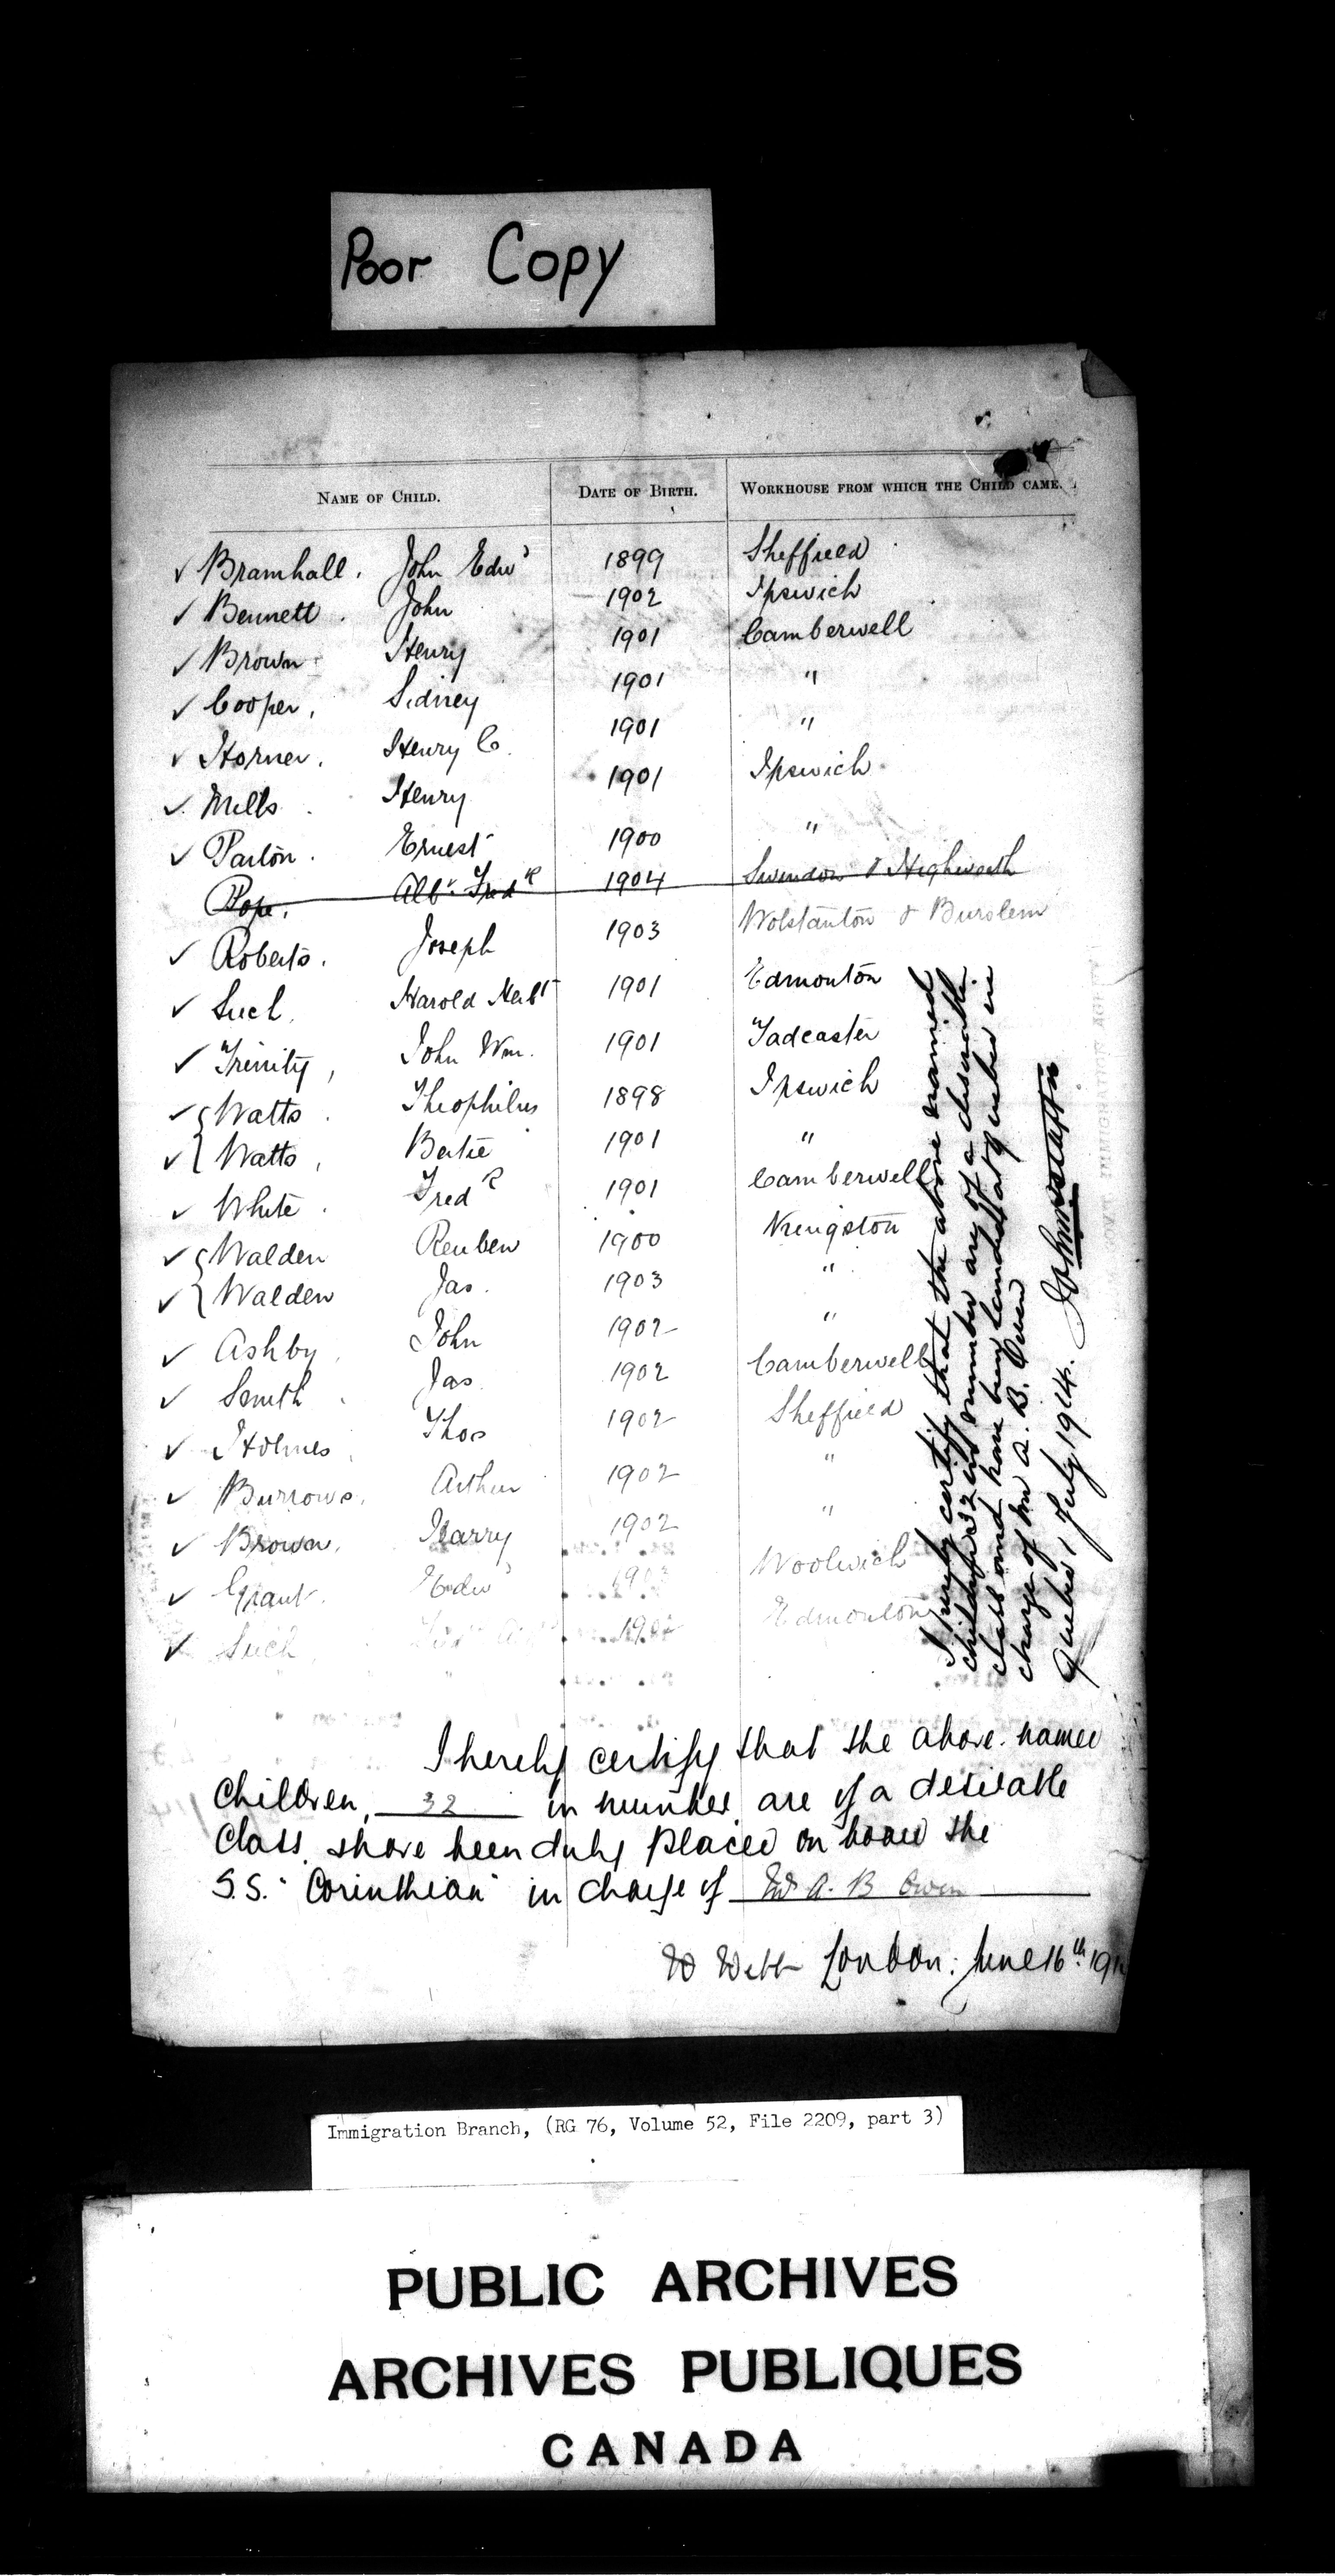 Poor Copy
NAME OF CHILD. DATE OF BIRTH. WORKHOUSE FROM WHICH THE CHILD CAME.
✓ Bramhall. John Edwd 1899 Sheffield
✓ Bennett. John 1902 Ipswich
✓ Brown Henry 1901 Camberwell
✓ Cooper, Sidney 1901 "
✓ Horner. Henry C. 1901 "
✓ Mills. Henry 1901 Ipswich
✓ Parton. Ernest 1900 "
Pope. Albt. Fredk 1904 Swindon & Highworth
✓ Roberts. Joseph 1903 Wolstanton & Burslem
✓ Such. Harold Herbt 1901 Edmonton
✓ Trinity, John Wm. 1901 Tadcaster
✓ Watts. Theophilus 1898 Ipswich
✓ Watts, Bertie 1901 "
✓ White. Fredk 1901 Camberwell
✓ Walden Reuben 1900 Kingston
✓ Walden Jas. 1903 "
✓ Ashby, John 1902 "
✓ Smith. Jas 1902 Camberwell
✓ Holmes. Thos 1902 Sheffield
✓ Burrows. Arthur 1902 "
✓ Brown. Harry 1902 "
✓ Grant. Edwd Woolwich
✓ Such. Edmonton
I hereby certify that the above named
children, 32 in number, are of a desirable
class, & have been duly placed on board the
S.S. "Corinthian" in charge of Mr A. B Owen
W Webb London; June 16th 191
I hereby certify that the above named
children 32 in number are of a desirable
class and have been landed at Quebec in
charge of Mr A. B. Owen
Quebec, 1 July 1914.
Immigration Branch, (RG 76, Volume 52, File 2209, part 3)
PUBLIC ARCHIVES
ARCHIVES PUBLIQUES
CANADA